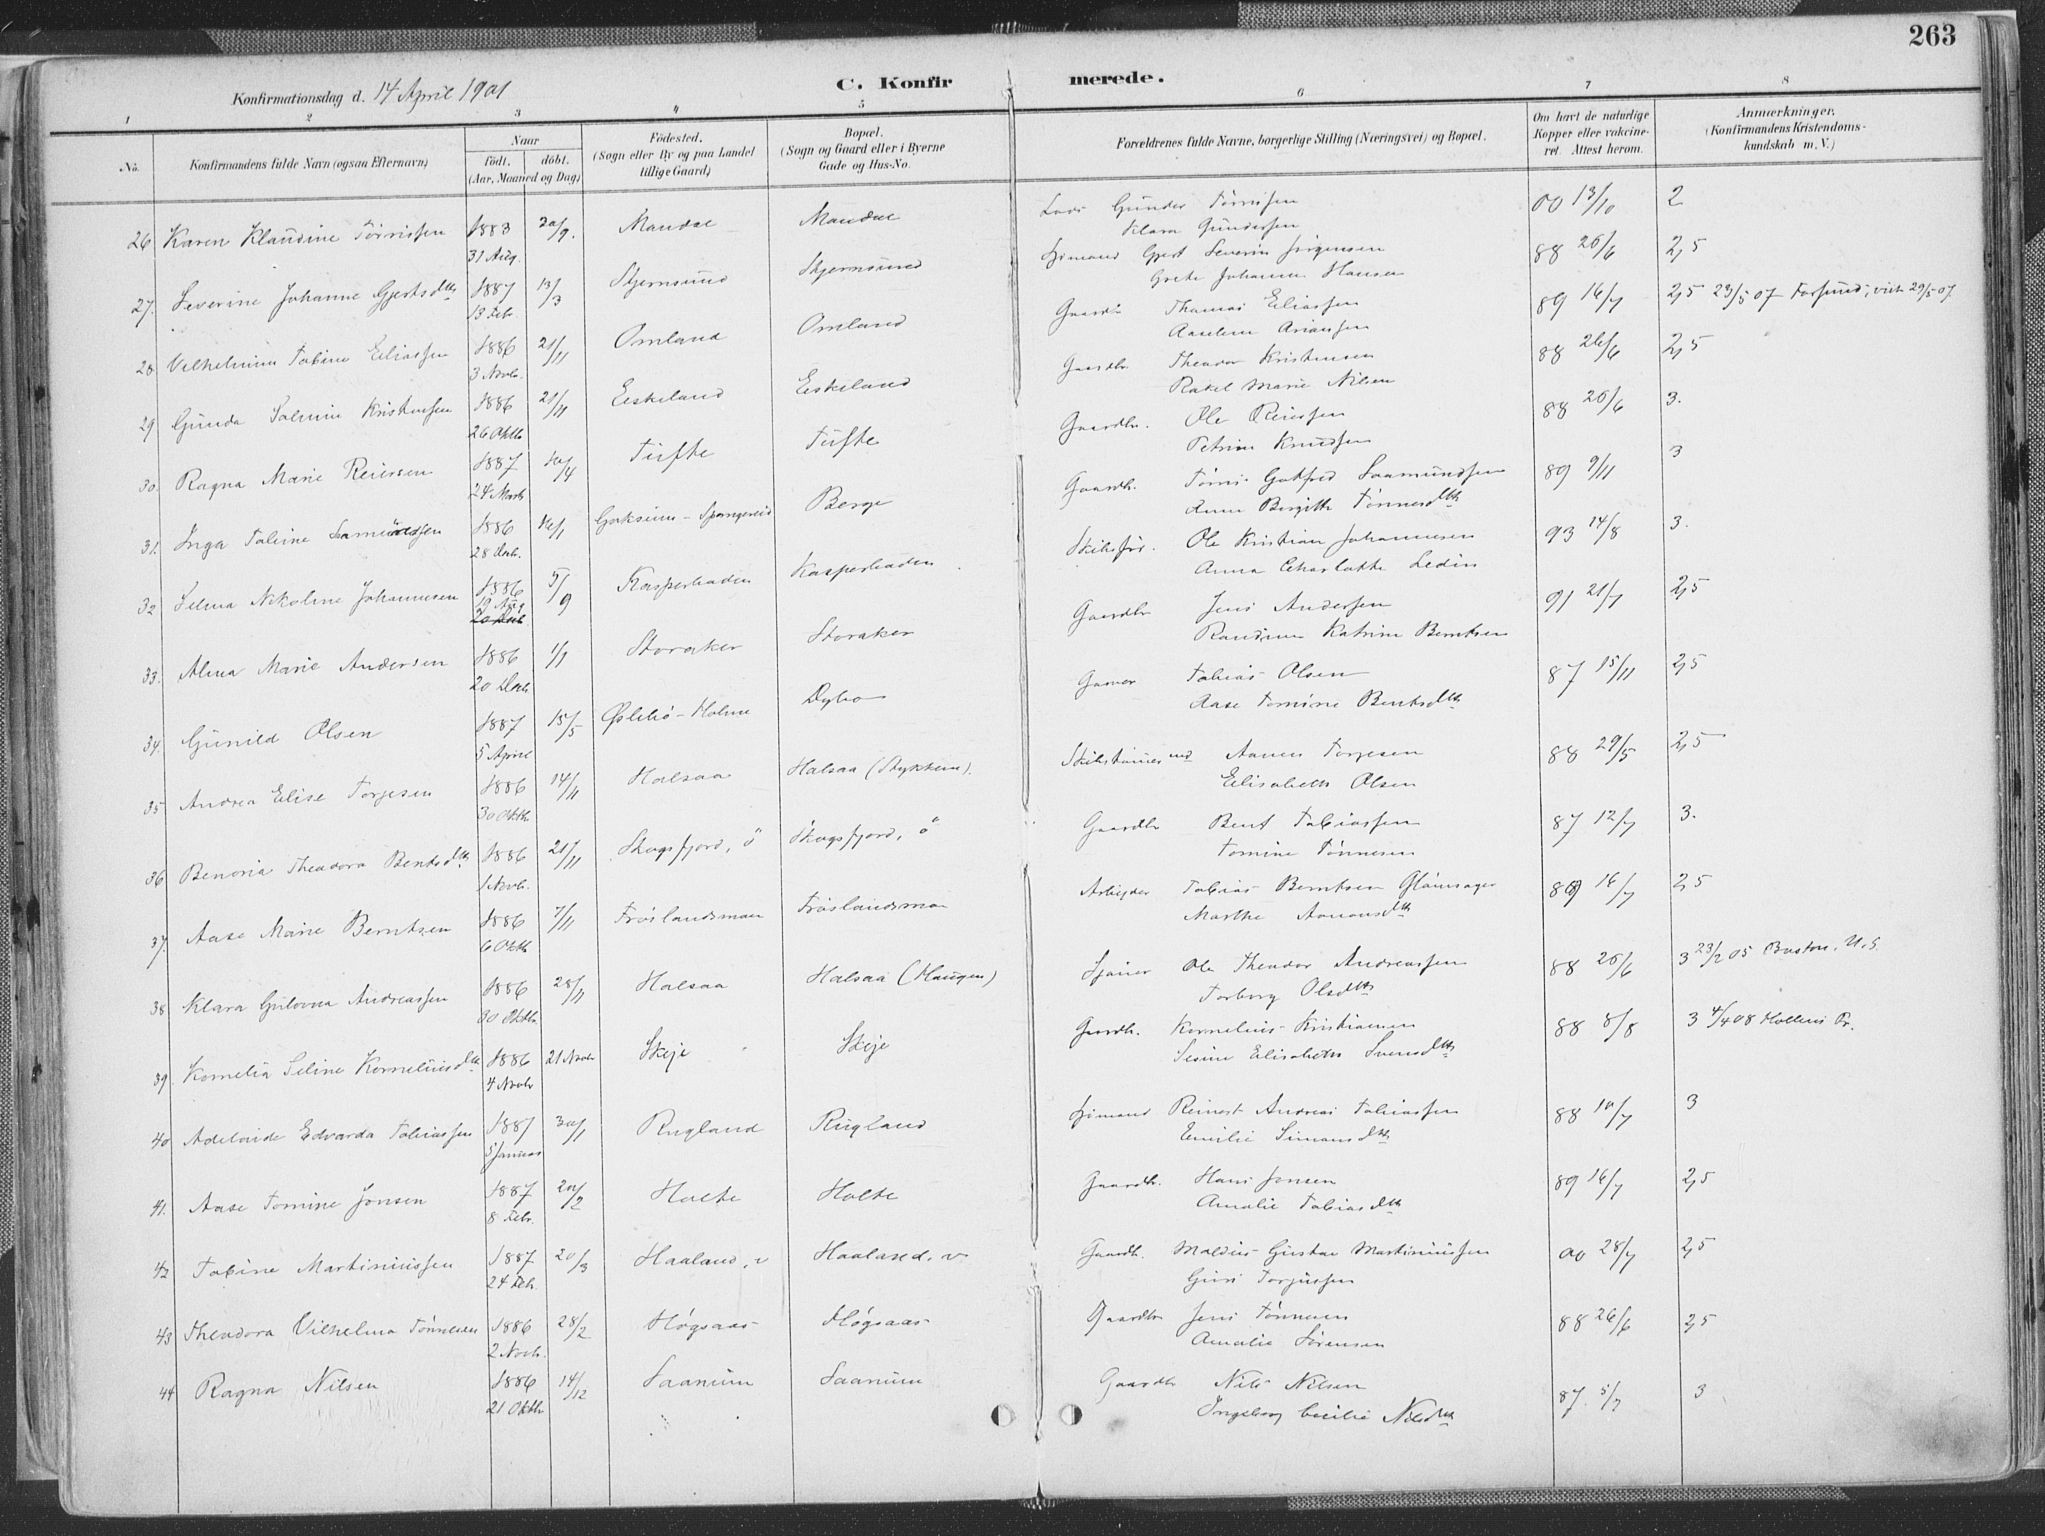 263
C. Konfirmerede.
Konfirmationsdag d. 14 April 1901
1 2 3 4 5 6 7 8
No.
Konfirmandens fulde Navn (ogsaa Efternavn)
Naar
födt. döbt.
(Aar, Maaned og Dag)
Födested.
(Sogn eller By og paa Landet
tillige Gaard)
Bopæl.
(Sogn og Gaard eller i Byerne
Gade og Hus-No.
Forældrenes fulde Navne, borgerlige Stilling (Næringsvei) og Bopæl.
Om havt de naturlige
Kopper eller vakcine-
ret. Attest herom.
Anmærkninger.
(Konfirmandens Kristendoms-
kundskab m. V.)
26 Karen Klaudine Tørrissen 1883 20/9. Mandal Mandal Lods Gunder Tørrissen 00 13/10 2
31 Aug. Klara Gundersen
27. Severine Johanne Gjertsdttr 1887 13/3 Skjernsund Skjernsund Sjømand Gjert Severin Jørgensen 88 26/6 2,5
13 Febr. Grete Johanne Hansen
28 Vilhelmine Tobine Eliassen 1886 21/11 Omland Omland Gaardbr Thomas Eliassen 89 16/7 2,5 23/5 07 Farsund, vist 29/5 07.
3 Novbr. Aselene Ariansen
29 Gunda Salmine Kristensen 1886 21/11 Eskeland Eskeland Gaardbr. Theodor Kristensen 88 26/6 2,5
26 Oktbr Rakel Marie Nilsen
30. Ragna Marie Reiersen 1887 10/4 Tufte Tufte Gaardbr. Ole Reiersen 88 26/6 3.
24 Marts Petrine Knudsen
31. Inga Tobine Samundsen 1886 16/1 Gjoksum - Spangereid Berge Gaardbr. Tørris Gotfred Saamundsen 89 9/11 3
28 Decb. Anne Birgitte Tønnesdttr
32 Selma Nikoline Johannesen 1886 5/9 Kasperbaden Kasperbaden Skibsfør. Ole Kristian Johannesen 93 14/8 3.
19 Aug Anna Charlotte Ledin
33. Alma Marie Andersen 1886 1/1 Storaker Storaker Gaardbr Jens Andersen 91 21/7 2,5
20 Decb Randine Katrine Berntsen
34. Gunild Olsen 1887 15/5 Øslebø - Holme Dybo Garver Tobias Olsen 87 15/11 2,5
5 April Aase Tomine Bentsdttr
35 Andrea Elise Torjesen 1886 14/11 Halsaa Halsaa (Stykkene). Skibstømmermd Aanen Torjesen 88 29/5 2,5
30 Oktbr Elisabeth Olsen
36 Benoria Theodora Bentsdttr 1886 21/11 Skogsfjord, ö Skogsfjord, ö Gaardbr Bent Tobiassen 87 12/7 3.
1 Novb. Tomine Tønnesen
37. Aase Marie Berntsen 1886 7/11 Frøslandsmoen Frøslandsmoen Arbeider Tobias Berntsen Glamsager 89 16/7 2,5
6 Oktb Marthe Aanonsdttr
38 Klara Gulovna Andreassen 1886 28/11 Halsaa Halsaa (Haugen) Sjauer Ole Theodor Andreassen 88 26/6 3 23/2 05 Boston. U.S.
30 Oktbr. Torborg Olsdttr
39. Kornelia Seline Korneliusdttr 1886 21 Novbr Skeje Skeje Gaardbr. Kornelius Kristiansen 88 8/8 3 4/4 08 Hollens Pr.
4 Novbr Sesine Elisabeth Svensdttr
40 Adelaide Edvarda Tobiassen 1887 30/1 Rugland Rugland Sjømand Reinert Andreas Tobiassen 88 10/7 3
5 Januar Emilie Simonsdttr
41. Aase Tomine Jonsen 1887 20/2 Holte Holte Gaardbr. Hans Jonsen 89 16/7 2,5
8 Febr. Amalie Tobiasdttr
42 Tobine Martiniussen 1887 20/3 Haaland, v Haaland, v Gaardbr. Moldius Gustav Martiniussen 00 28/7 2,5
24 Febr. Guri Torjussen
43 Theodora Vilhelma Tønnesen 1886 28/2 Høgsaas Høgsaas Gaardbr Jens Tønnesen 88 26/6 2,5
2 Novbr. Amalie Sørensen
44 Ragna Nilsen 1886 14/12 Saanum Saanum Gaardbr Nils Nilsen 87. 5/7 3
21 Oktbr Ingeborg Cecilie Nilsdttr